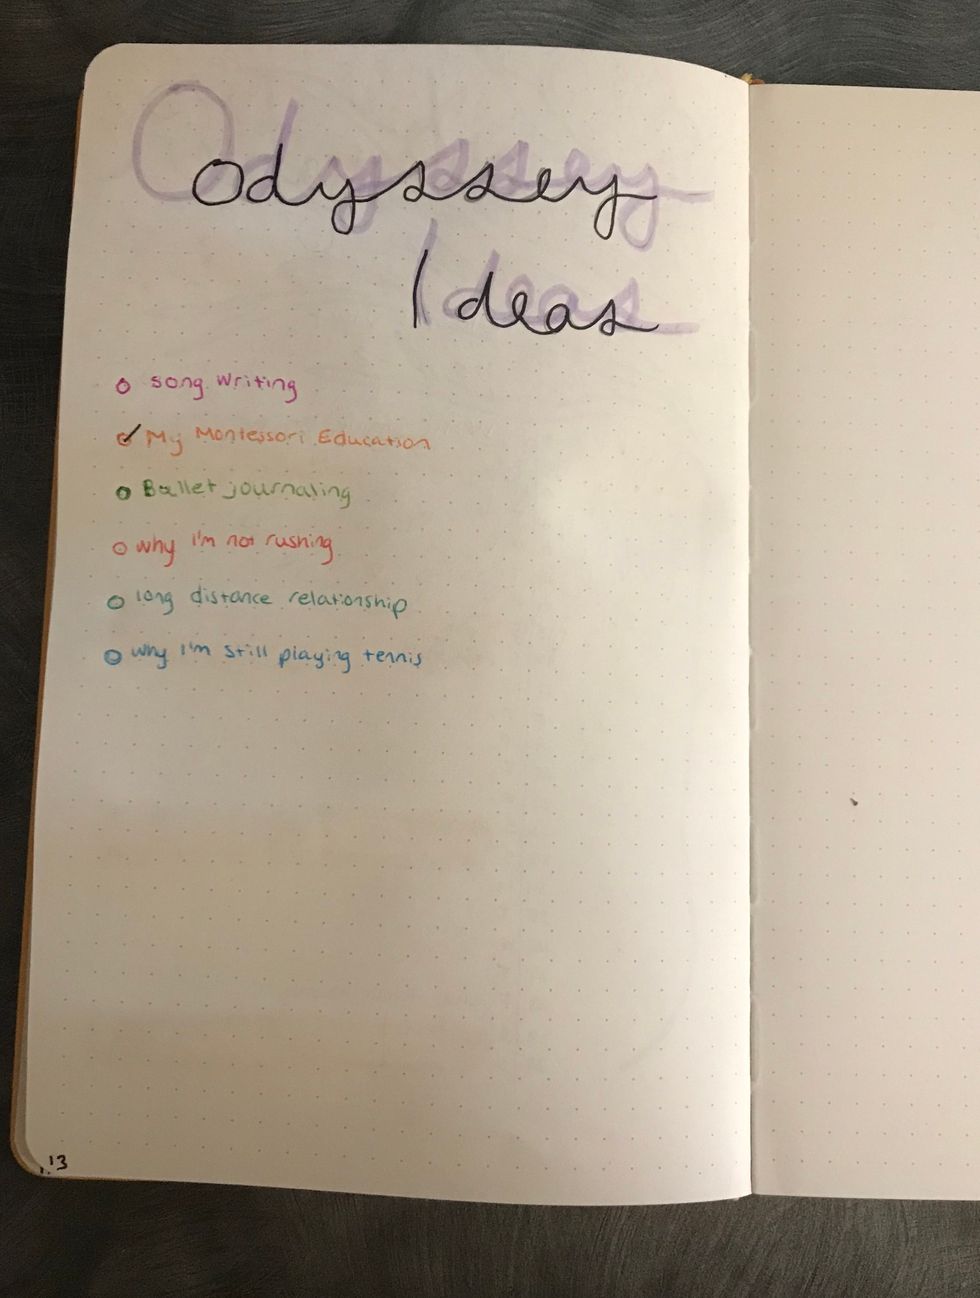 Odyssey
Ideas
song writing
My Montessori Education
Bullet journaling
why I'm not rushing
long distance relationship
why I'm still playing tennis